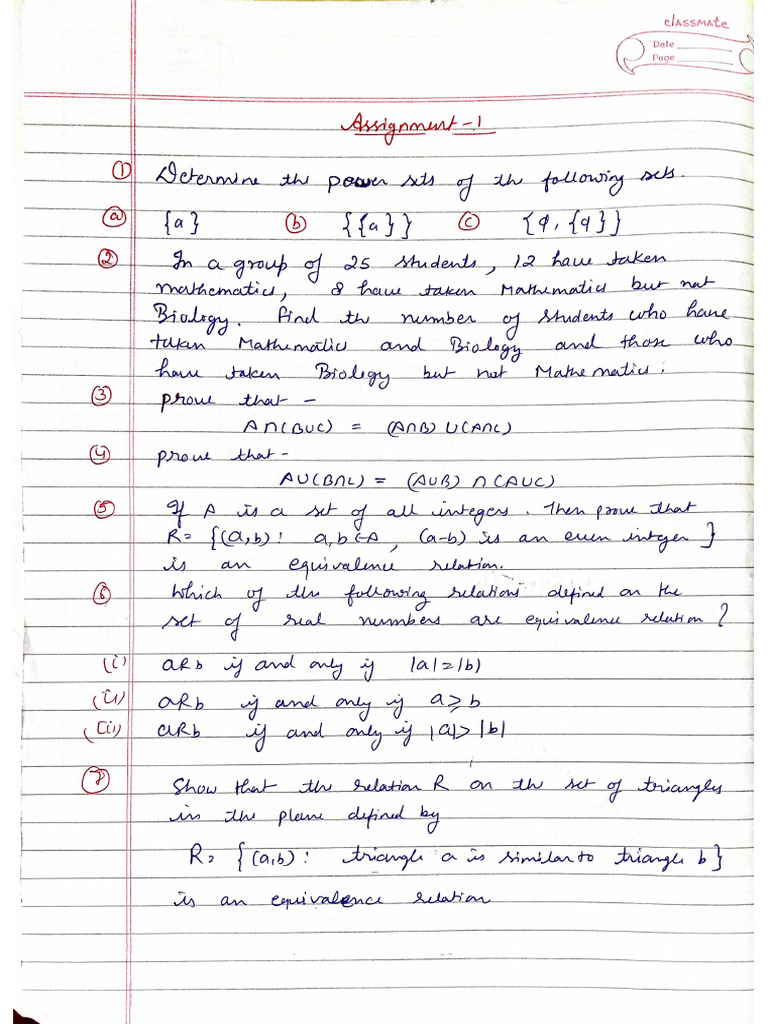 classmate
Date
Page
Assignment-1
① Determine the power sets of the following sets.
ⓐ {a} ⓑ {{a}} ⓒ {φ, {φ}}
② In a group of 25 students, 12 have taken
mathematics, 8 have taken Mathematics but not
Biology. find the number of students who have
taken Mathematic and Biology and those who
have taken Biology but not Mathematics.
③ prove that -
A∩(B∪C) = (A∩B) ∪(A∩C)
④ prove that -
A∪(B∩C) = (A∪B) ∩ (A∪C)
⑤ If A is a set of all integers. Then prove that
R = {(a,b): a,b ∈ A, (a-b) is an even integer}
is an equivalence relation.
⑥ Which of the following relations defined on the
set of real numbers are equivalence relation?
(i) aRb if and only if |a|=|b|
(ii) aRb if and only if a ≥ b
(iii) aRb if and only if |a|>|b|
⑦ Show that the relation R on the set of triangles
in the plane defined by
R = {(a,b): triangle a is similar to triangle b}
is an equivalence relation